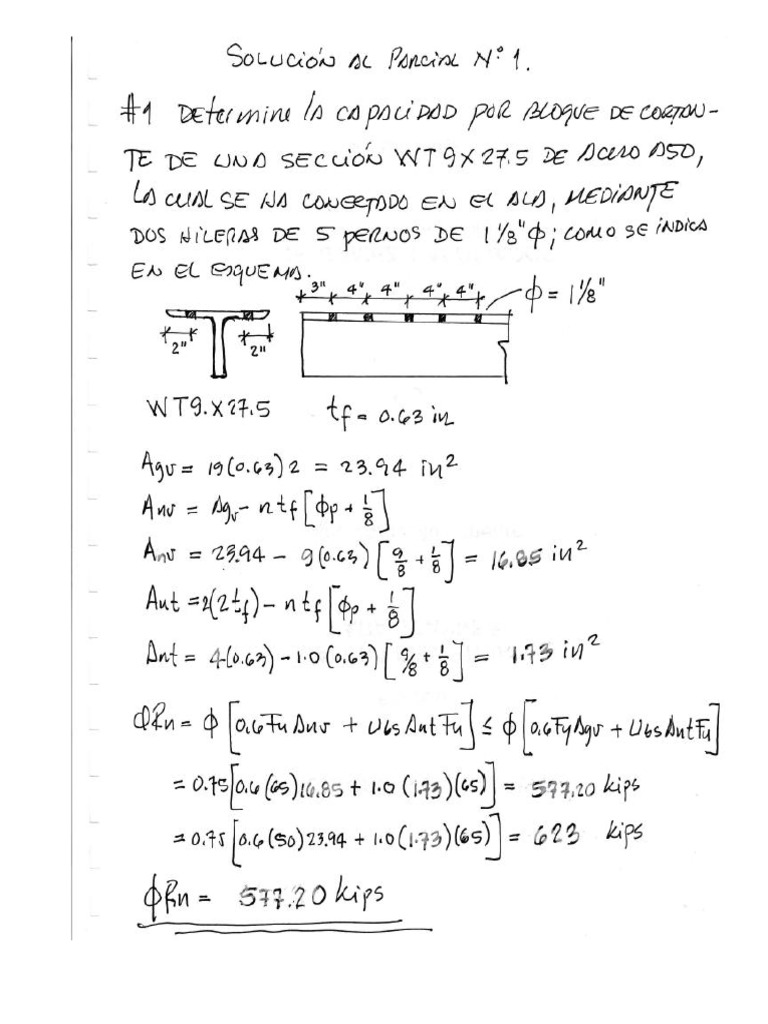 SOLUCIÓN AL PARCIAL N° 1.
#1 DETERMINE LA CAPACIDAD POR BLOQUE DE CORTAN-
TE DE UNA SECCIÓN WT9X27.5 DE ACERO A50,
LA CUAL SE HA CONECTADO EN EL ALA, MEDIANTE
DOS HILERAS DE 5 PERNOS DE 1 1/8" Φ; COMO SE INDICA
EN EL ESQUEMA.
3" 4" 4" 4" 4" Φ = 1 1/8"
2" 2"
WT9.X27.5 tf = 0.63 in
Agv = 19(0.63)2 = 23.94 in²
Anv = Agv - n tf [Φp + 1/8]
Anv = 23.94 - 9(0.63) [9/8 + 1/8] = 16.85 in²
Ant = 2(2tf) - n tf [Φp + 1/8]
Ant = 4(0.63) - 1.0 (0.63) [9/8 + 1/8] = 1.73 in²
ΦRn = Φ [0.6 Fu Anv + Ubs Ant Fu] ≤ Φ [0.6 Fy Agv + Ubs Ant Fu]
= 0.75 [0.6 (65) 16.85 + 1.0 (1.73)(65)] = 577.20 kips
= 0.75 [0.6 (50) 23.94 + 1.0 (1.73)(65)] = 623 kips
ΦRn = 577.20 kips